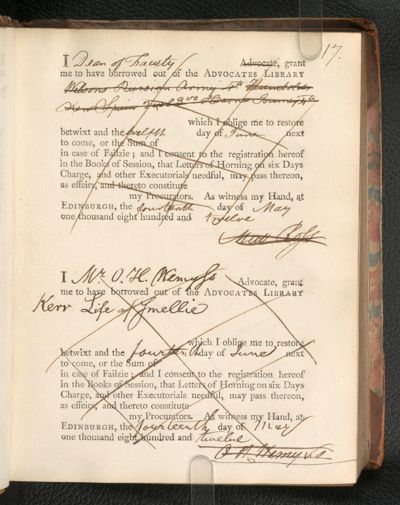 17.
I Dean of Faculty Advocate, grant
me to have borrowed out of the ADVOCATES LIBRARY
Wilsons Russian Army 4to
which I oblige me to restore
betwixt and the day of June next
to come, or the Sum of
in case of Failzie; and I consent to the registration hereof
in the Books of Session, that Letters of Horning on six Days
Charge, and other Executorials needful, may pass thereon,
as effeirs, and thereto constitute
my Procurators. As witness my Hand, at
EDINBURGH, the fourteenth day of May
one thousand eight hundred and twelve
Matt Ross
I Mr. O. H. Wemyss Advocate, grant
me to have borrowed out of the ADVOCATES LIBRARY
Kerr Life of Smellie
which I oblige me to restore
betwixt and the fourteenth day of June next
to come, or the Sum of
in case of Failzie; and I consent to the registration hereof
in the Books of Session, that Letters of Horning on six Days
Charge, and other Executorials needful, may pass thereon,
as effeirs, and thereto constitute
my Procurators. As witness my Hand, at
EDINBURGH, the fourteenth day of May
one thousand eight hundred and twelve
O H Wemyss